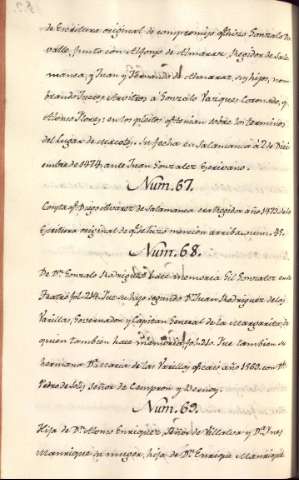 de Escritura original de compromiso q.e hizo Gonzalo de
valle, junto con Alfonso de Almaraz, Regidor de Sala
manca, y Juan y Fernando de Almaraz, sus hijos, nom
brando Jueces Arvitros a Gonzalo Vazquez Coronado, y
Alonso Flores; en los pleitos q.e tenian sobre los terminos
del Lugar de . Su fecha en Salamanca a 2 de Dici
embre de 1474. ante Juan Gonzalez Escrivano.
Num. 67.
Consta q.e Diego Alvarez de Salamanca era Regidor año 1473. de la
Escritura original de q.e dejo hecho mencion arriba num. 45.
Num. 68.
De D.n Gonzalo Rodriguez hace memoria Gil Gonzalez en su
Teatro fol. 234. Fue su hijo segundo D.n Juan Rodriguez de las
Varillas, Governador y Capitan General de la Margarita, de
quien tambien hace memoria fol. 240. Fue tambien su
hermana D.a Maria de las Varillas q.e caso año 1560. con D.n
Pedro de Solis, Señor de y .
Num. 69.
Hija de D.n Alonso Enriquez, Señor de Villalva y D.a Ines
Manrique su muger, hija de D.n Enrique Manrique